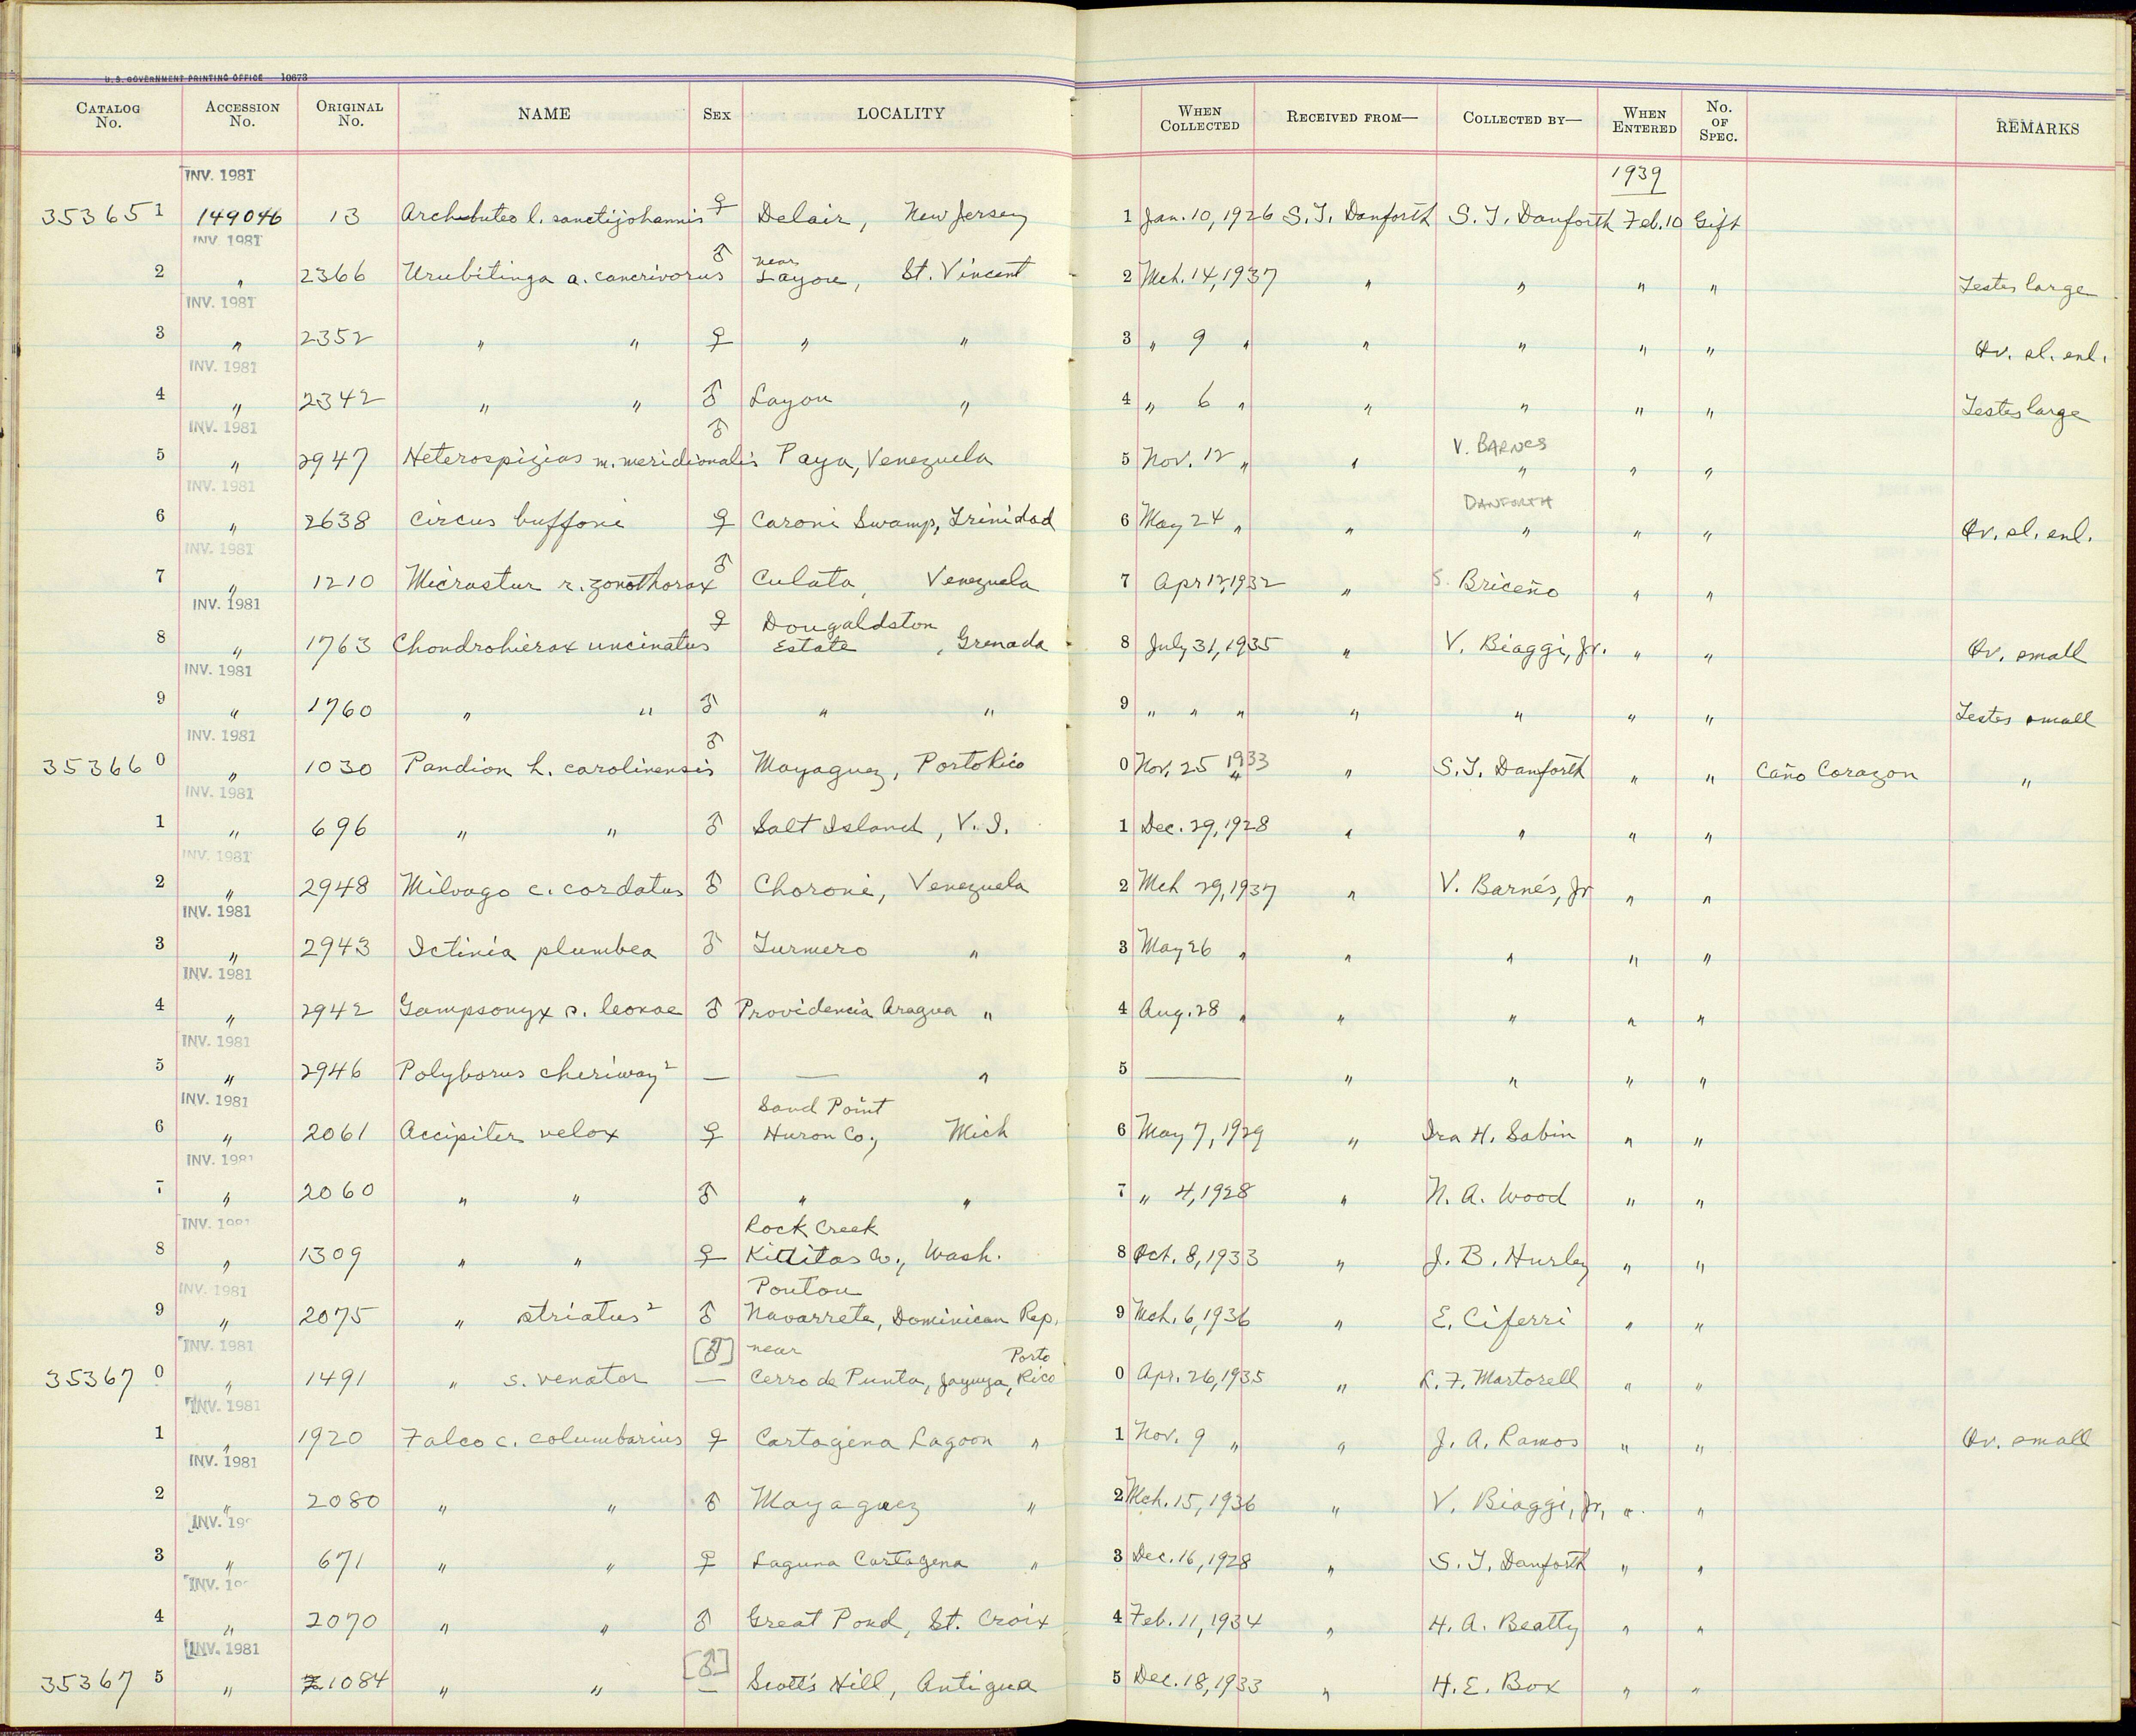 U.S. GOVERNMENT PRINTING OFFICE 10673
CATALOG No. ACCESSION No. ORIGINAL No. NAME SEX LOCALITY WHEN COLLECTED RECEIVED FROM— COLLECTED BY— WHEN ENTERED No. OF SPEC. REMARKS
INV. 1981 1939
353651 149046 13 Archibuteo l. sanctijohannis ♀ Delair, New Jersey 1 Jan. 10, 1926 S. T. Danforth S. T. Danforth Feb. 10 Gift
INV. 1981
2 " 2366 Urubitinga a. cancrivorus ♂ near Layou, St. Vincent 2 Mch. 14, 1937 " " " " Testes large
INV. 1981
3 " 2352 " " ♀ " " 3 " 9 " " " " " Ov. sl. enl.
INV. 1981
4 " 2342 " " ♂ Layou " 4 " 6 " " " " " Testes large
INV. 1981
5 " 2947 Heterospizias m. meridionalis ♂ Paya, Venezuela 5 Nov. 12 " " V. BARNES " " "
INV. 1981
6 " 2638 Circus buffoni ♀ Caroni Swamp, Trinidad 6 May 24 " " DANFORTH " " " Ov. sl. enl.
INV. 1981
7 " 1210 Micrastur r. zonothorax ♂ Culata, Venezuela 7 Apr 12, 1932 " S. Briceño " "
INV. 1981
8 " 1763 Chondrohierax uncinatus ♀ Dougaldston Estate, Grenada 8 July 31, 1935 " V. Biaggi, Jr. " " Ov. small
INV. 1981
9 " 1760 " " ♂ " " 9 " " " " " " " Testes small
INV. 1981
353660 " 1030 Pandion h. carolinensis ♂ Mayaguez, Porto Rico 0 Nov. 25 1933 " " S. T. Danforth " " Caño Corazon "
INV. 1981
1 " 696 " " ♂ Salt Island, V. I. 1 Dec. 29, 1928 " " " "
INV. 1981
2 " 2948 Milvago c. cordatus ♂ Choroni, Venezuela 2 Mch 29, 1937 " V. Barnés, Jr " "
INV. 1981
3 " 2943 Ictinia plumbea ♂ Turmero " 3 May 26 " " " " "
INV. 1981
4 " 2942 Gampsonyx s. leonae ♂ Providencia Aragua " 4 Aug. 28 " " " " "
INV. 1981
5 " 2946 Polyborus cheriway² — — " 5 — " " " "
INV. 1981
6 " 2061 Accipiter velox ♀ Sand Point Huron Co., Mich 6 May 7, 1929 " Ira H. Sabin " "
INV. 1981
7 " 2060 " " ♂ " " 7 " 4, 1928 " N. A. Wood " "
INV. 1981
8 " 1309 " " ♀ Rock Creek Kittitas Co., Wash. 8 Oct. 8, 1933 " J. B. Hurley " "
INV. 1981
9 " 2075 " striatus² ♂ Ponton Navarrete, Dominican Rep. 9 Mch. 6, 1936 " E. Ciferri " "
INV. 1981
353670 " 1491 " s. venator [♂] — near Cerro de Punta, Jayuya, Porto Rico 0 Apr. 26, 1935 " L. F. Martorell " "
INV. 1981
1 " 1920 Falco c. columbarius ♀ Cartagena Lagoon " 1 Nov. 9 " " J. A. Ramos " " Ov. small
INV. 1981
2 " 2080 " " ♂ Mayaguez " 2 Mch. 15, 1936 " V. Biaggi, Jr. " "
INV. 19
3 " 671 " " ♀ Laguna Cartagena " 3 Dec. 16, 1928 " S. T. Danforth " "
INV. 19
4 " 2070 " " ♂ Great Pond, St. Croix 4 Feb. 11, 1934 " H. A. Beatty " "
INV. 1981
353675 " 1084 " " [♂] — Scotts Hill, Antigua 5 Dec. 18, 1933 " H. E. Box " "